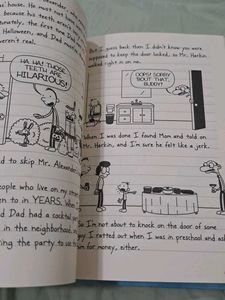 s house. He must not have
because his teeth aren't
ortunately, the first time
Halloween, and Dad made
weren't real.
HA, HA! THOSE
TEETH ARE
HILARIOUS!
ed to skip Mr. Alexander
people who live on my street
en to in YEARS.
d Dad had a cocktail
in the neighborhood,
ring the party to use
But I guess back then I didn't know you were
supposed to keep the door locked, so Mr. Harkin
walked right in on me.
OOPS! SORRY
'BOUT THAT,
BUDDY!
When I was done I found Mom and told on
Mr. Harkin, and I'm sure he felt like a jerk.
So I'm not about to knock on the door of some
guy I ratted out when I was in preschool and ask
him for money, either.